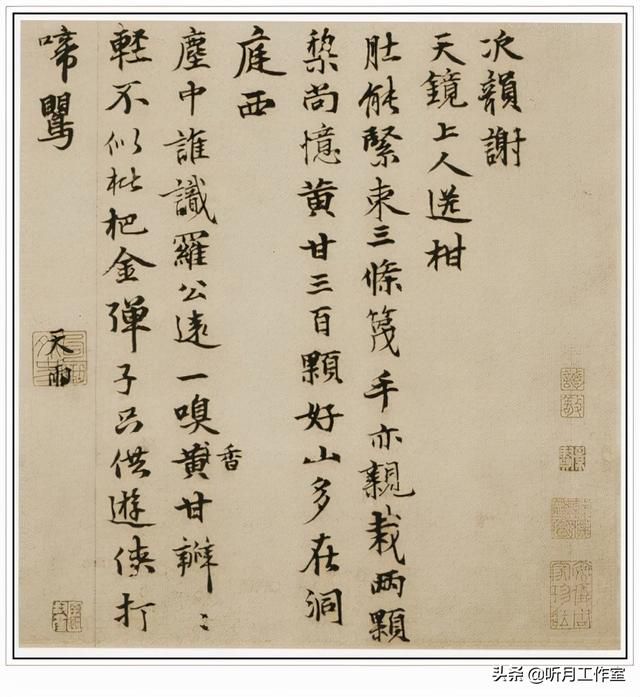 次韻謝
天鏡上人送柑
肚能緊束三條篾手亦親栽兩顆
棃尚憶黄甘三百顆好山多在洞
庭西
塵中誰識羅公遠一嗅黄甘瓣〻
香
輕不似枇杷金彈子只供遊俠打
啼鸎
天雨
头条 @听月工作室